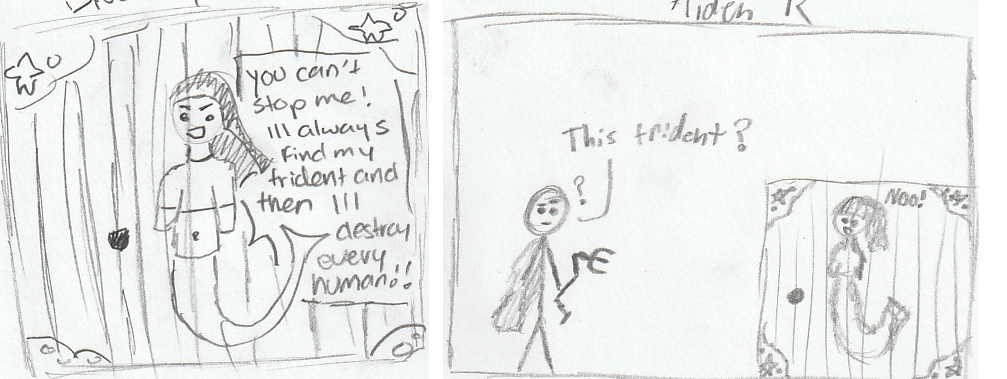 Aiden R
you can't
stop me!
Ill always
Find my
trident and
then Ill
destroy
every
human!!
This trident?
?
Noo!